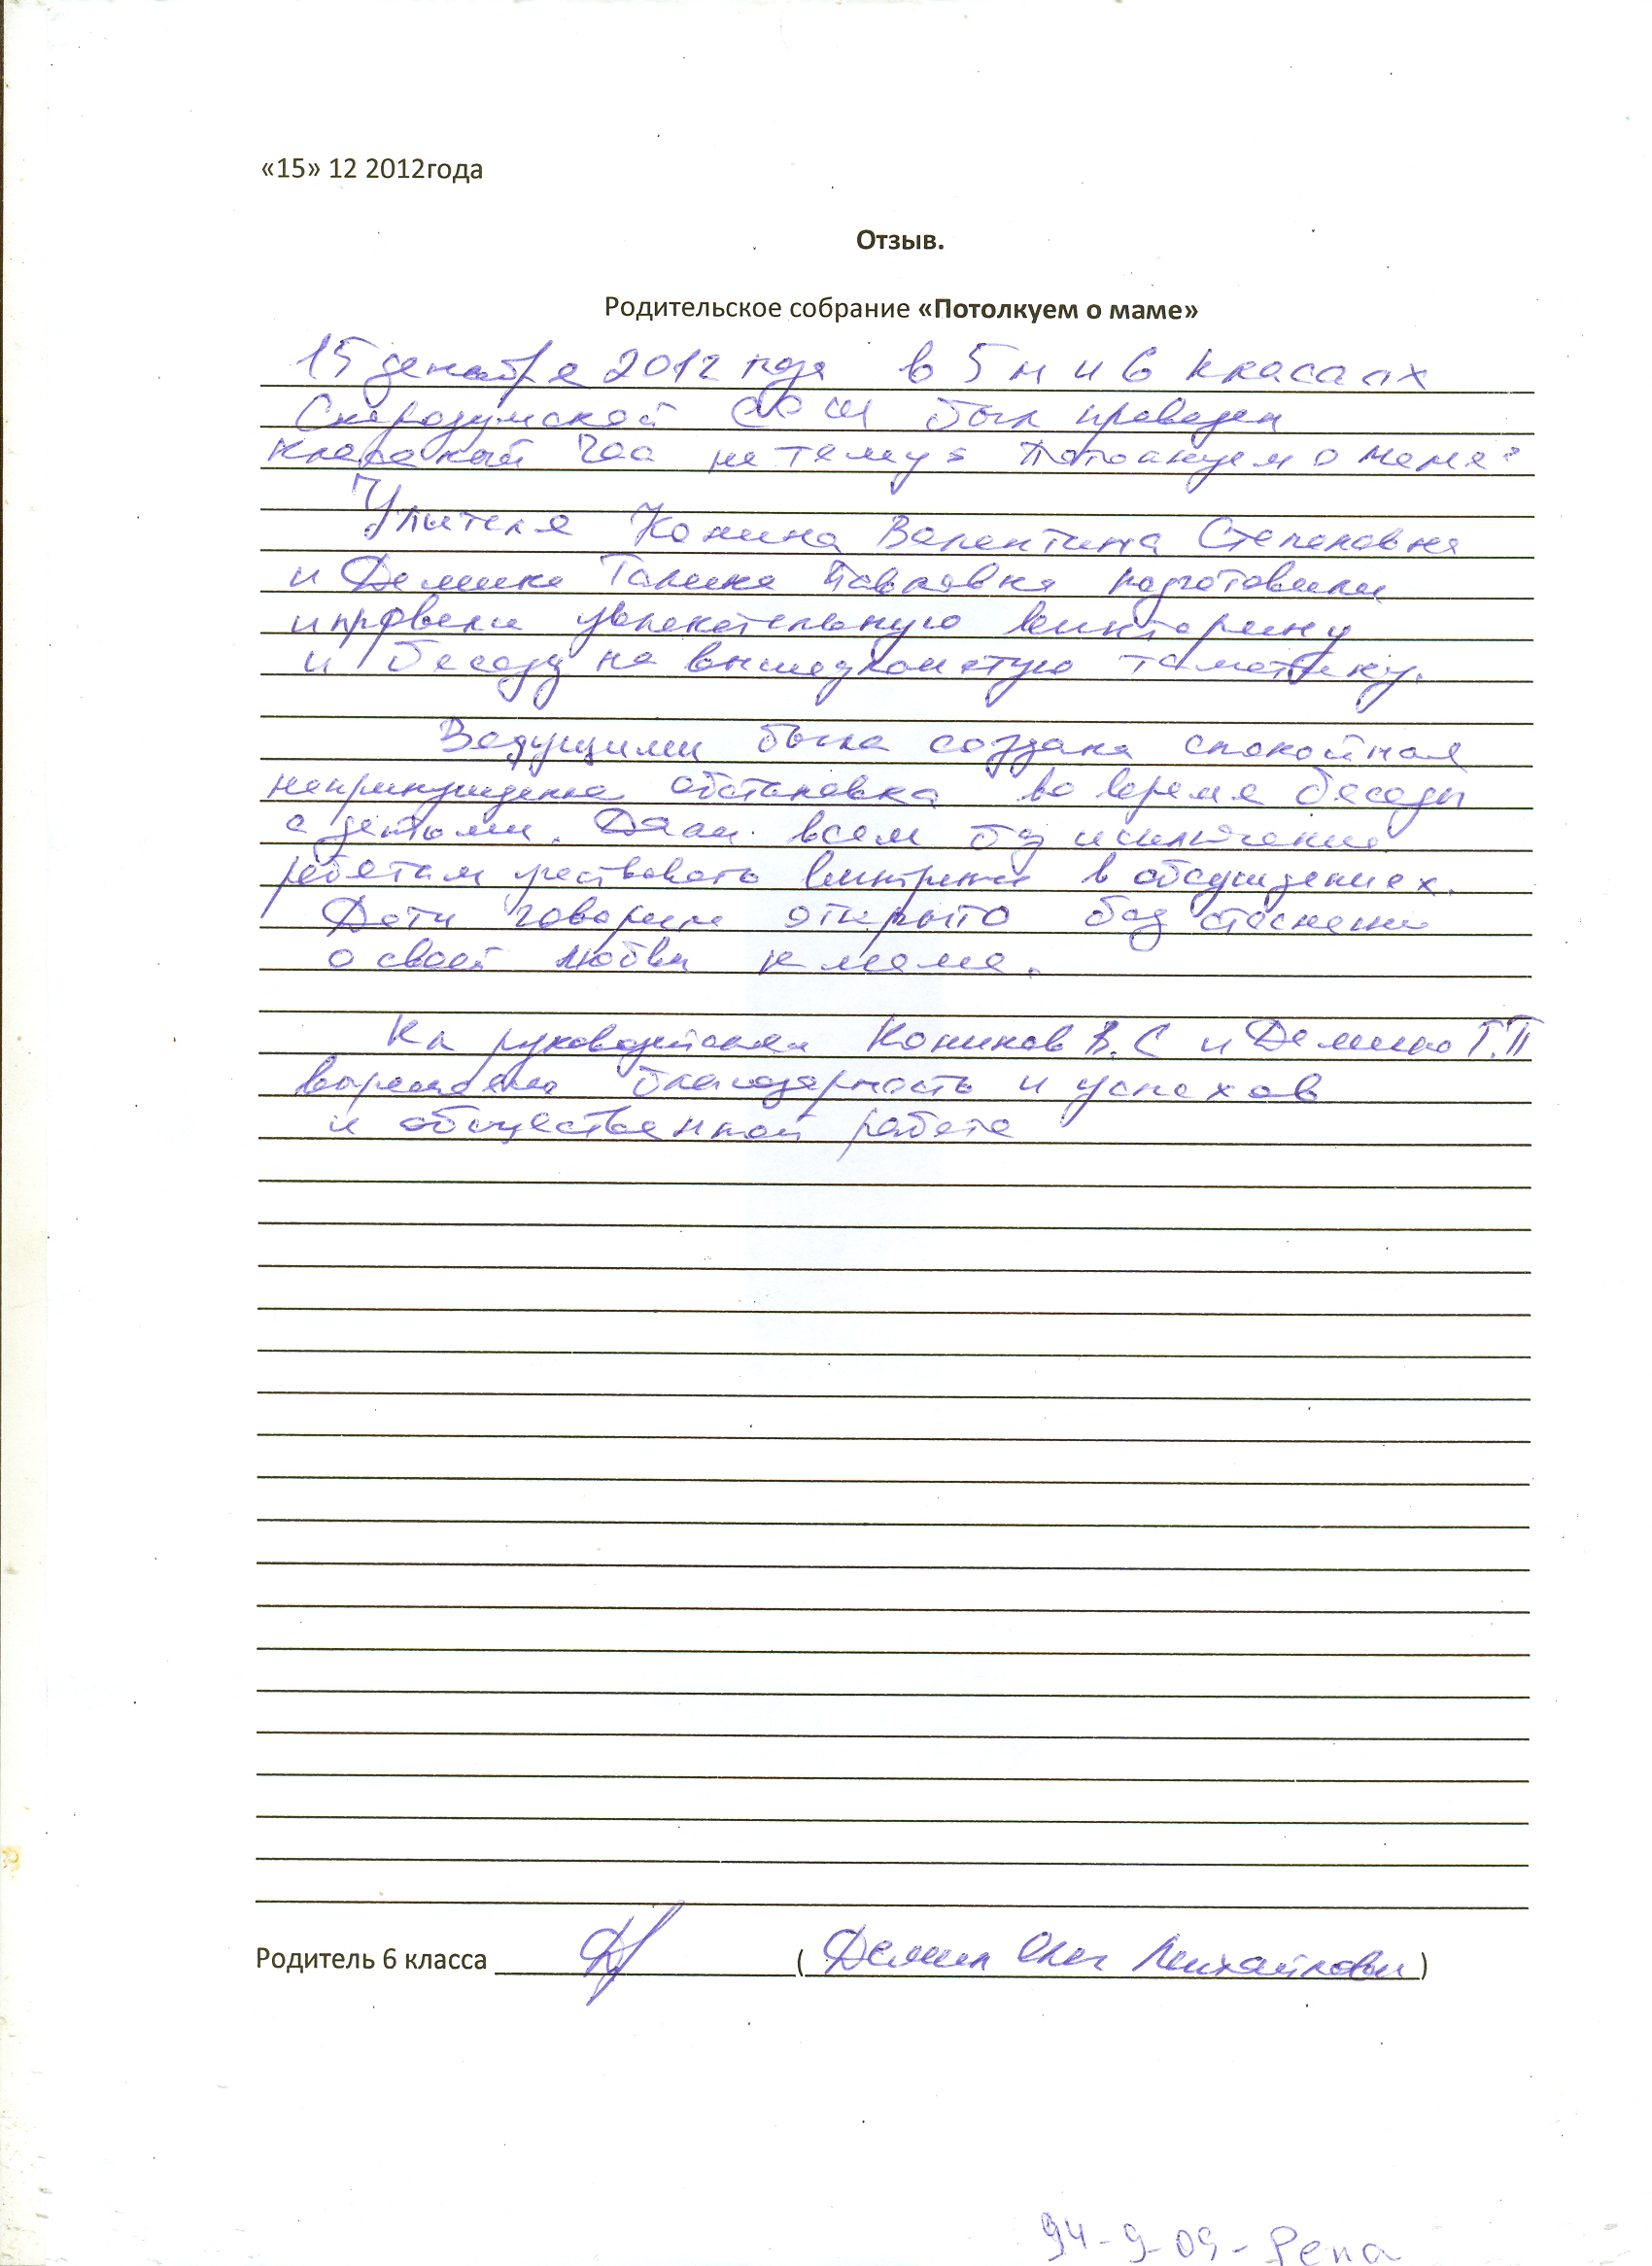 «15» 12 2012года
Отзыв.
Родительское собрание «Потолкуем о маме»
15 декабря 2012 года в 5 м и 6 класаах
Скородумской СОШ был проведен
час на тему: Потолкуем о маме"
Учителя Конина Валентина Степановна
и Демина Галина Павловна подготовили
и провели увлекательную викторину
и беседу на тематику.
Ведущими была создана спокойная
непринужденна обстановка во время беседы
с детьми. Дали всем без исключения
ребятам в обсуждениях.
Дети говорили открыто без стеснения
о своей любви к маме.
Кл руководителям В.С и Г.П
благодарность и успехов
и общественной работе
Родитель 6 класса ( Демин Олег Михайлович )
94-9-09- Рена